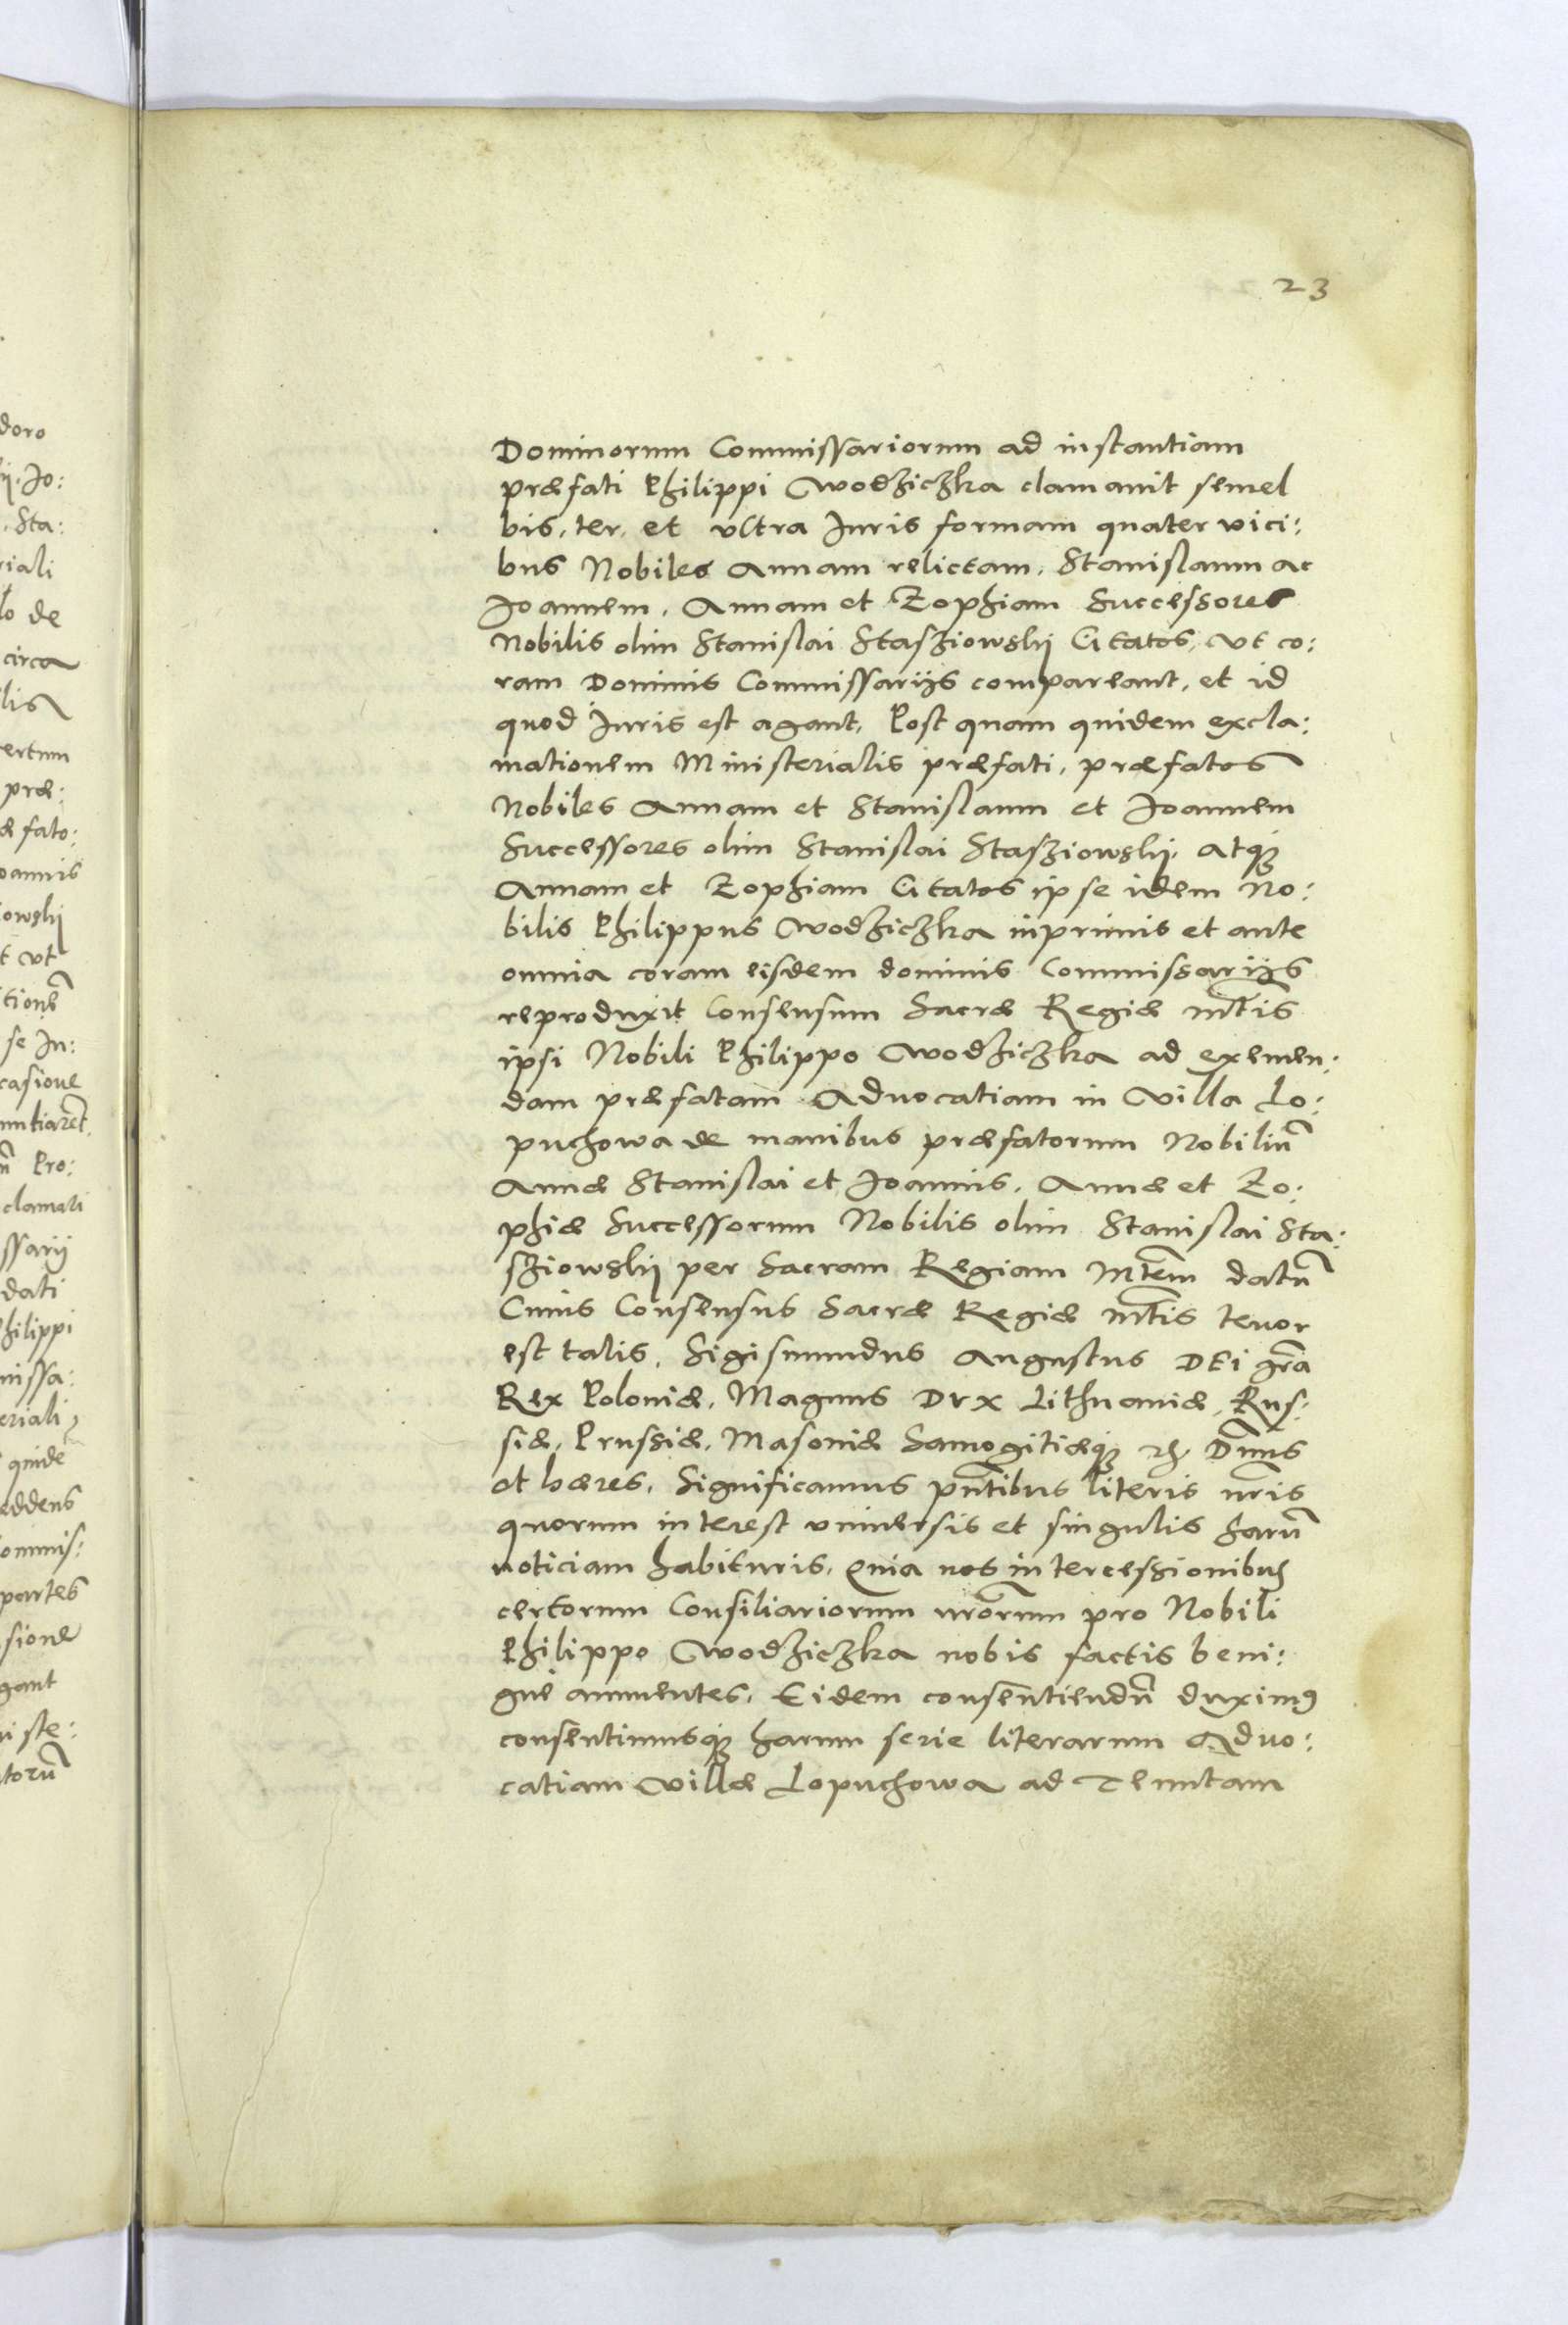 23
Dominorum Commissariorum ad instantiam
præfati Philippi Wodziczka clamauit semel
bis, ter, et vltra Iuris formam quater vici:
bus Nobiles Annam relictam, Stanislaum ac
Ioannem, Annam et Zophiam Successores
Nobilis olim Stanislai Stasziowskij Citatos, vt co:
ram Dominis Commissarijs compareant, et id
quod Iuris est agant, Post quam quidem excla:
mationem Ministerialis præfati, præfatos
Nobiles Annam et Stanislaum et Ioannem
Successores olim Stanislai Stasziowskij, atq₃
Annam et Zophiam Citatos ipse idem No:
bilis Philippus Wodziczka inprimis et ante
omnia coram eisdem dominis Commissarijs
reproduxit Consensum Sacræ Regiæ Mt̃is
ipsi Nobili Philippo Wodziczka ad exemen:
dam præfatam Aduocatiam in Villa Lo:
puchowa de manibus præfatorum Nobiliũ
Annæ Stanislai et Ioannis, Annæ et Zo:
phiæ Successorum Nobilis olim Stanislai Sta:
sziowskij per Sacram Regiam Mt̃em datũ
Cuius Consensus Sacræ Regiæ Mt̃is tenor
est talis, Sigismundus Augustus DEi gr̃a
Rex Poloniæ, Magnus Dvx Lithuaniæ, Rus:
siæ, Prussiæ, Masoniæ Samogitiæq₃ ꝛc̃ Dñus
et hæres, Significamus pñtibus literis nr̃is
quorum interest vniuersis et singulis harũ
noticiam habituris, Quia nos intercessionibus
certorum Consiliariorum nr̃orum pro Nobili
Philippo Wodziczka nobis factis beni:
gne annuentes, Eidem consentiendũ duximꝰ
consentimusq₃ harum serie literarum Aduo:
catiam Villæ Lopuchowa ad Tenutam